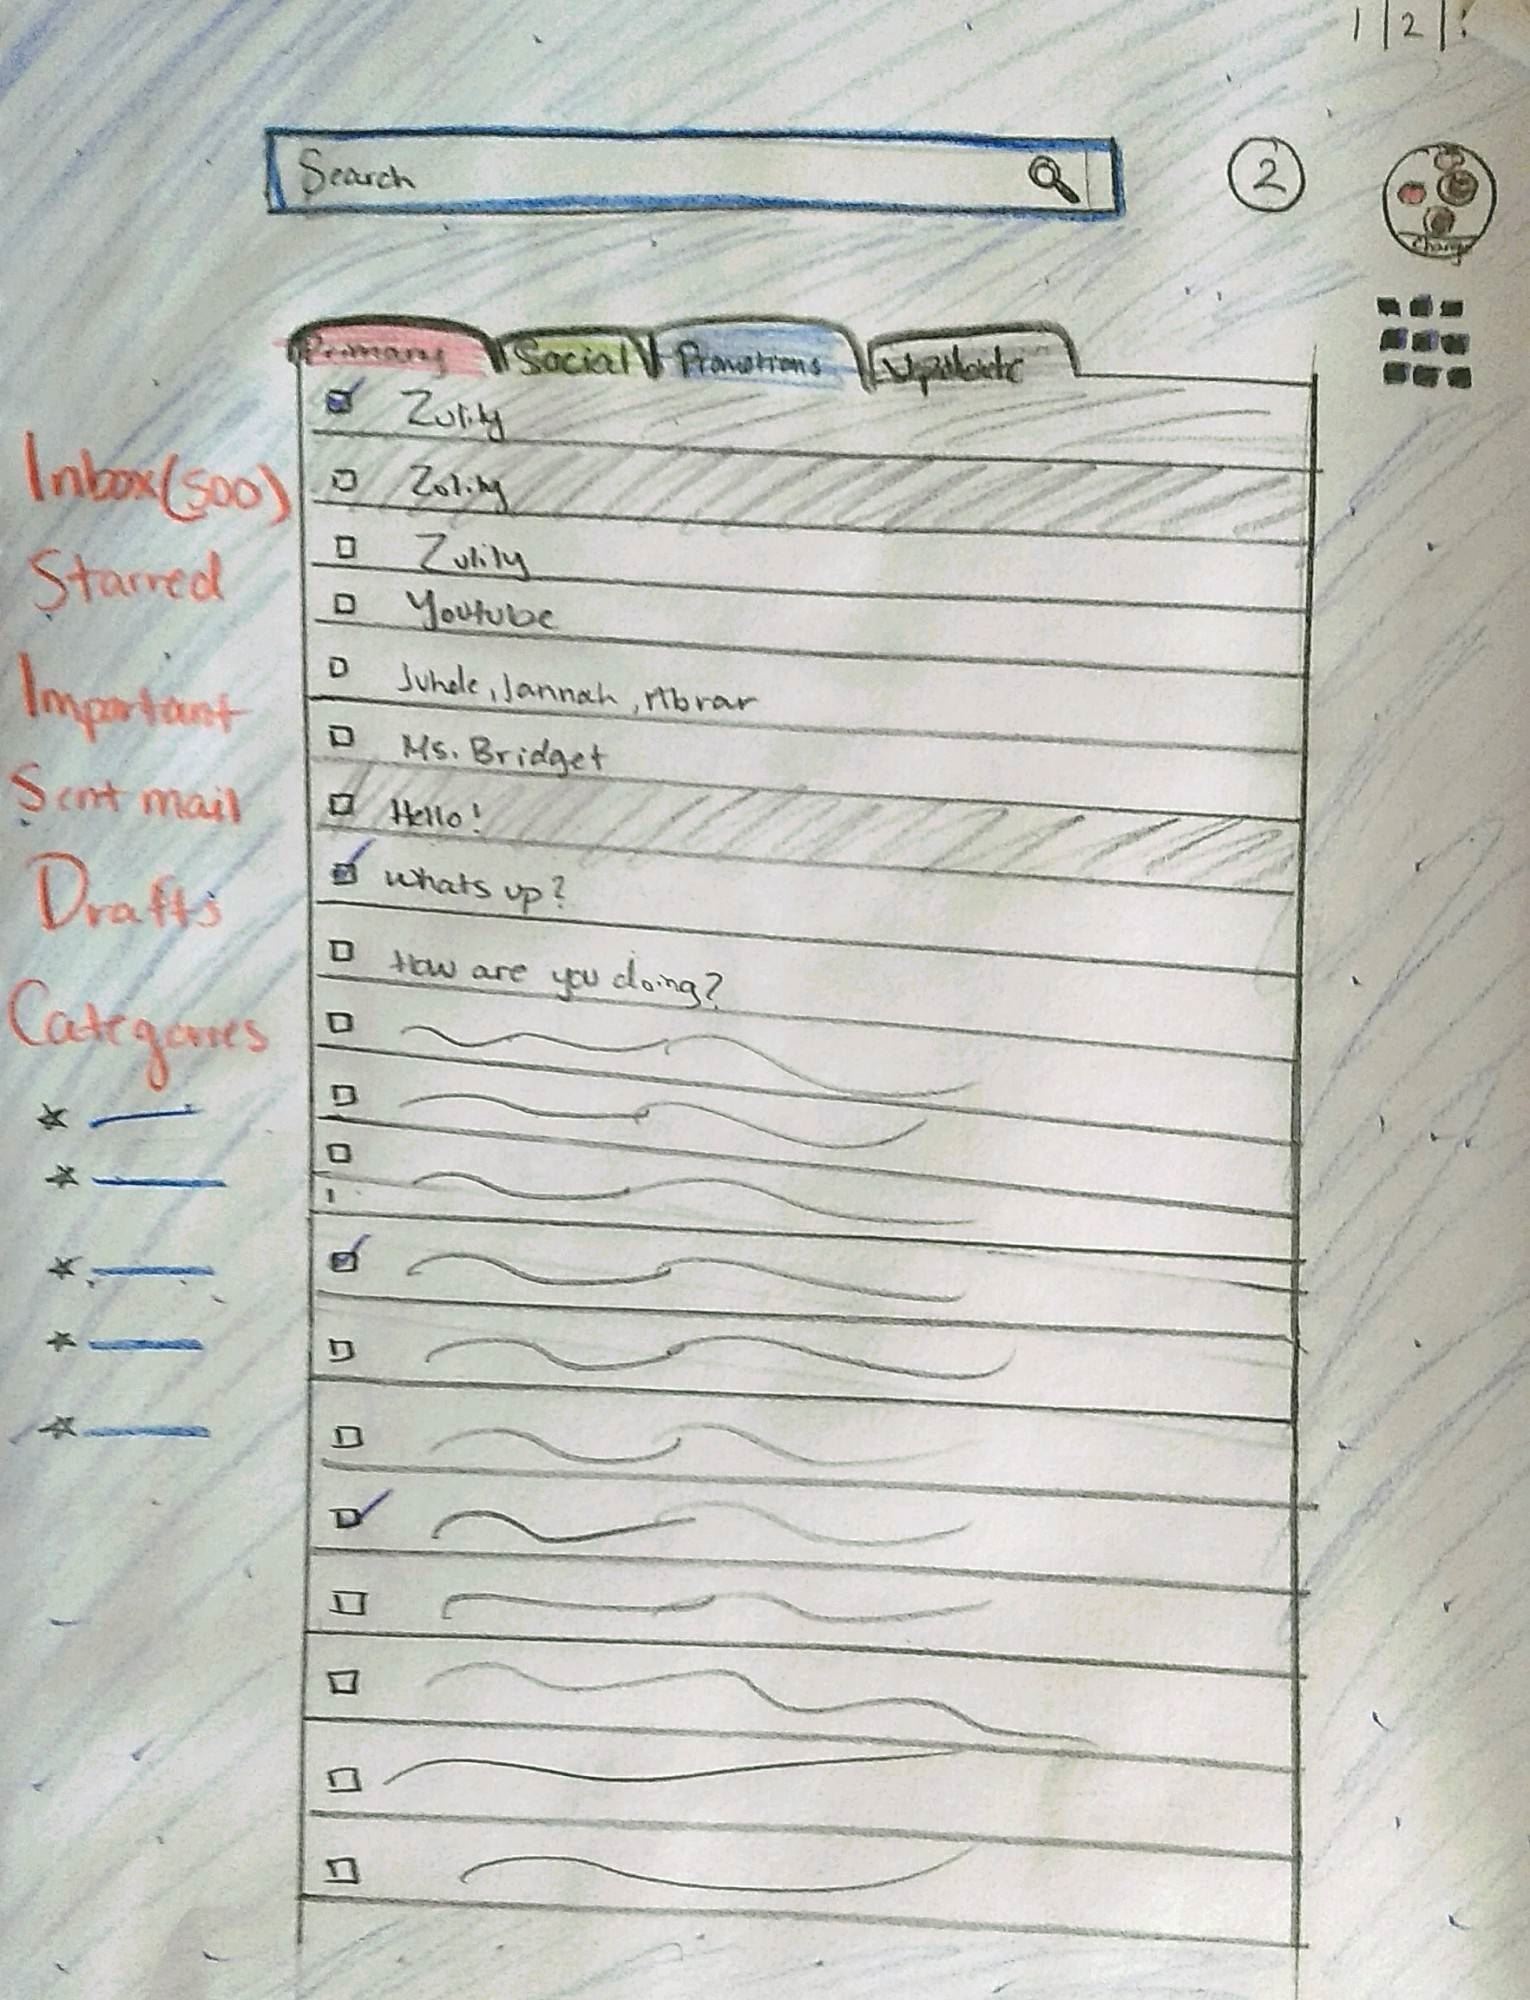 1|2|
Search
2
Change
Primary Social Promotions Update
Zulily
Zulily
Zulily
Youtube
Juhele, Jannah, Abrar
Ms. Bridget
Hello!
whats up?
How are you doing?
Inbox(500)
Starred
Important
Sent mail
Drafts
Categories